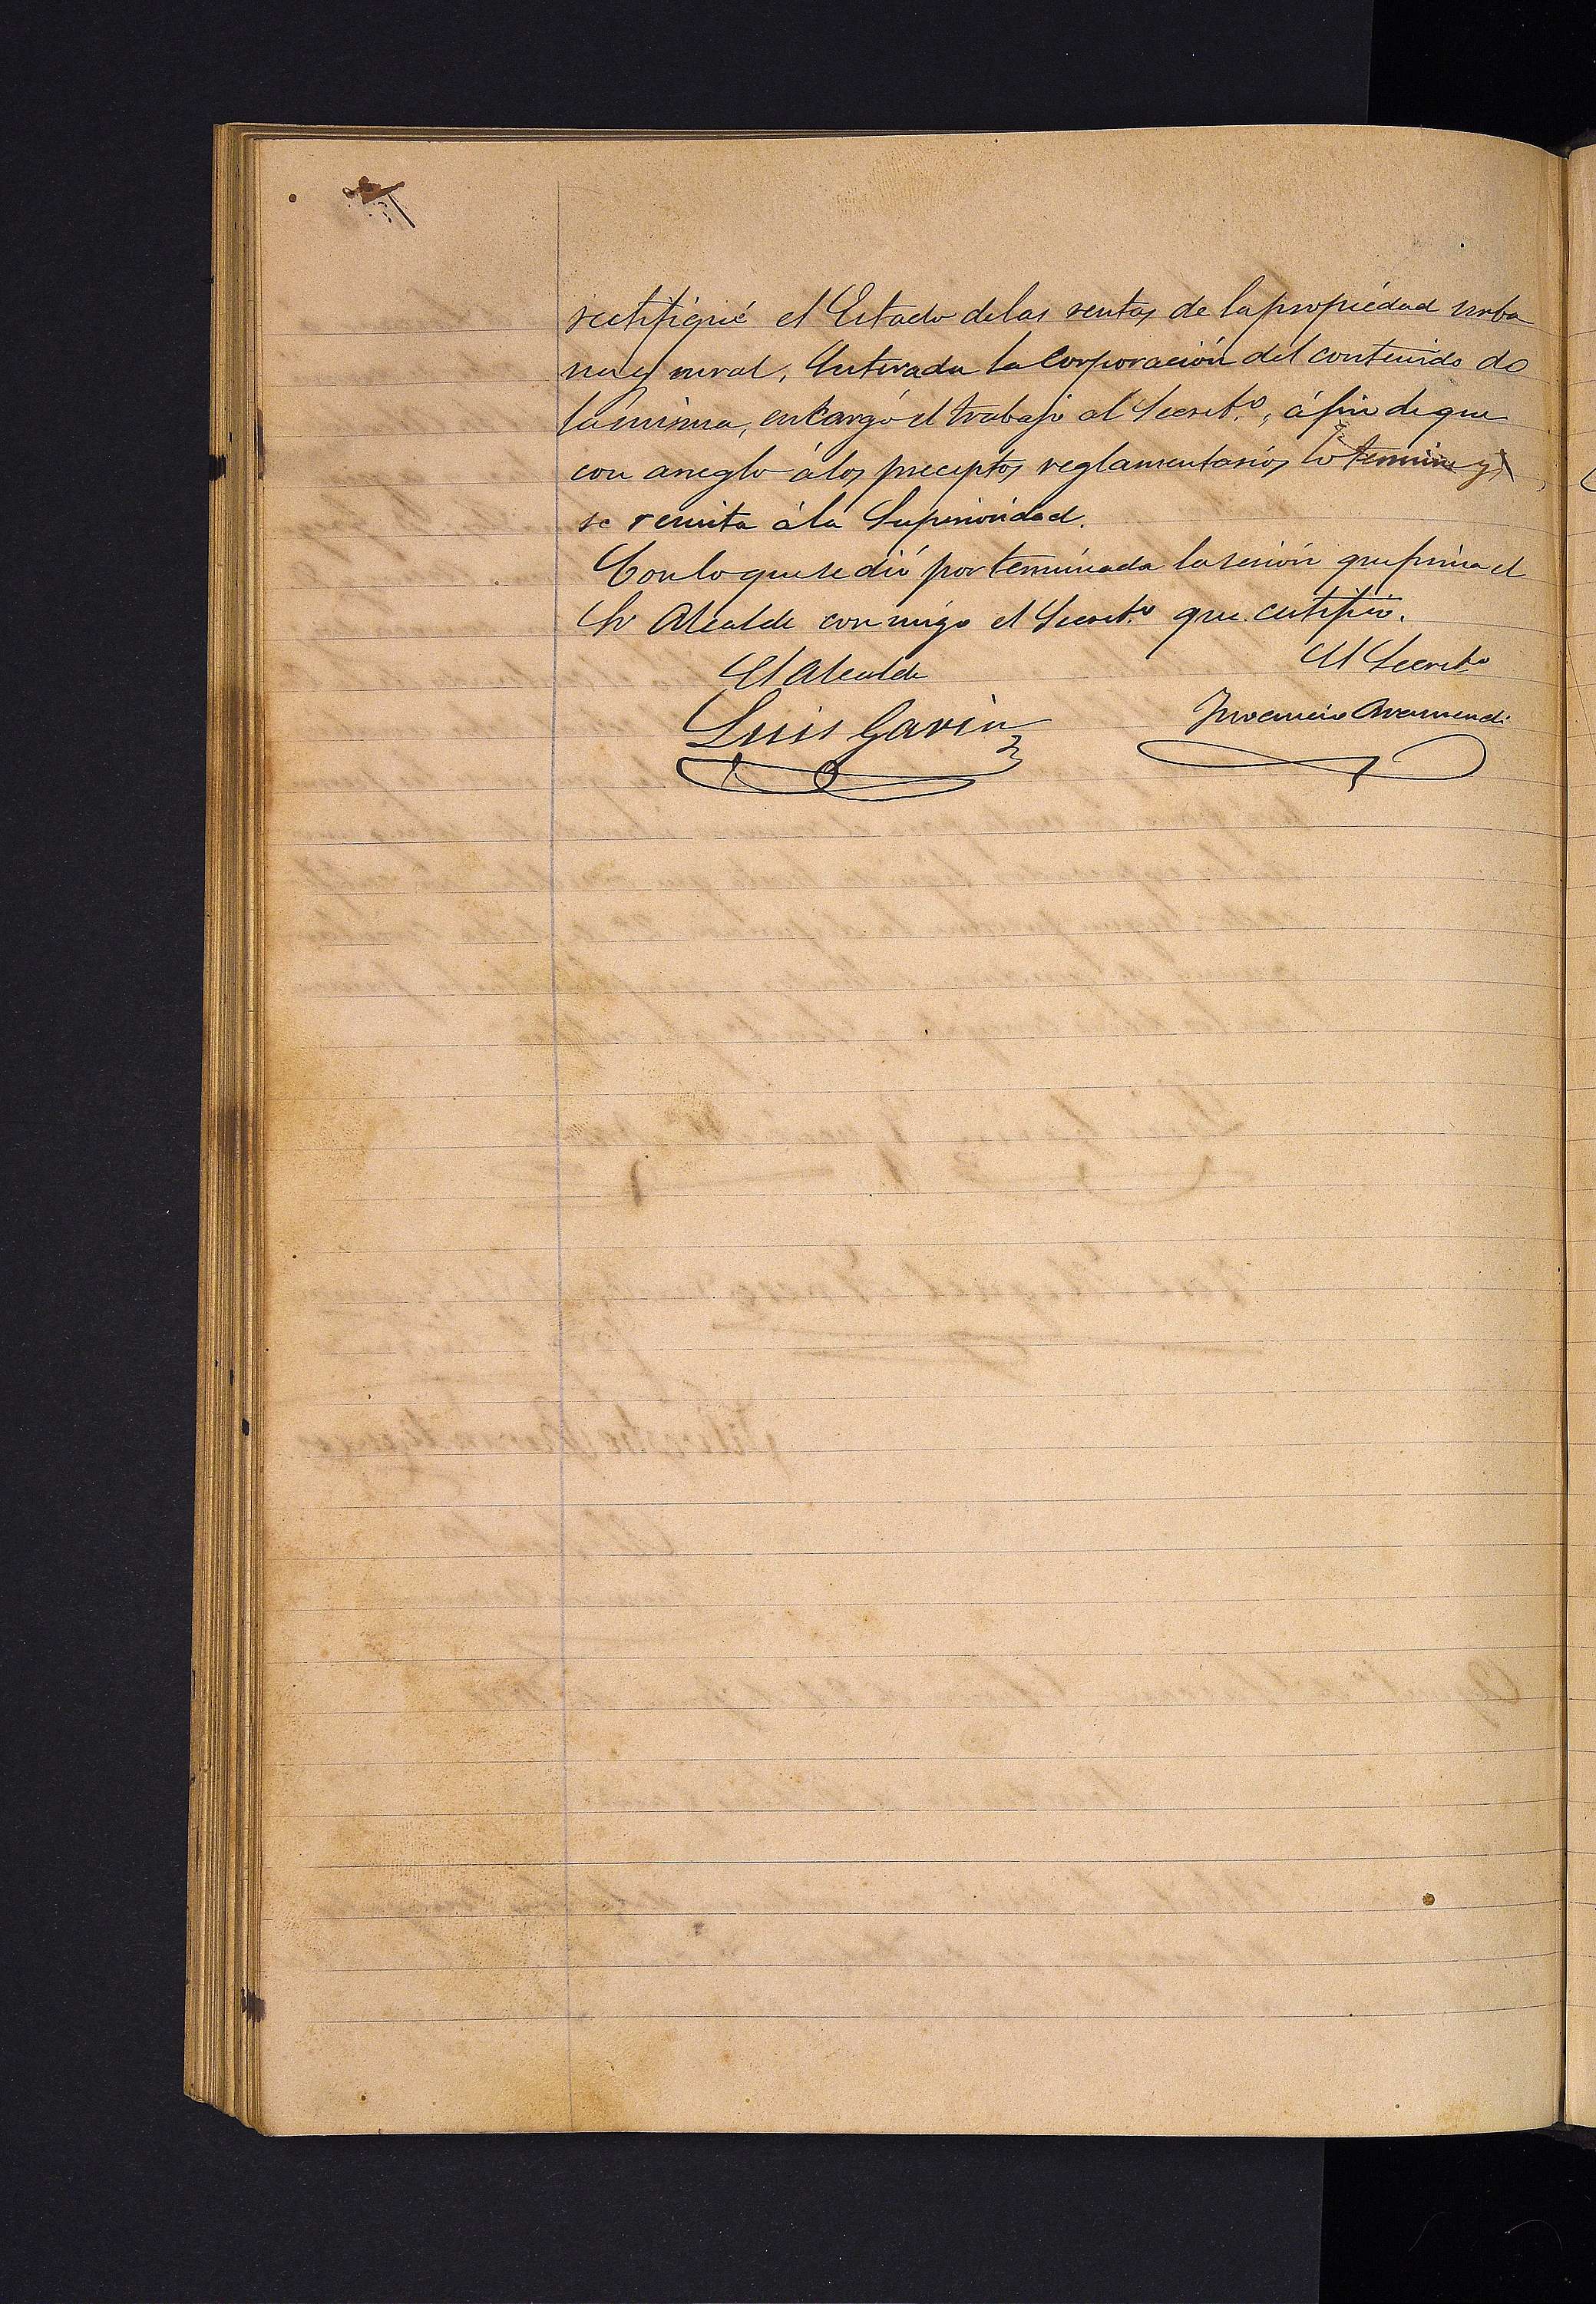 rectifiqué el Estado delas rentas de la propiedad urba
na y rural, Enterada la Corporación del contenido de
la misma, encargó el trabajo al Secret.º, á fin de que
con arreglo á los preceptos reglamentarios lo termine y
se remita á la Superioridad.
Con lo que se dió por terminada la sesión que firma el
Sr Alcalde con migo el Secret.º que certifico.
El Alcalde El Secretº
Luis Gavin Aramendi